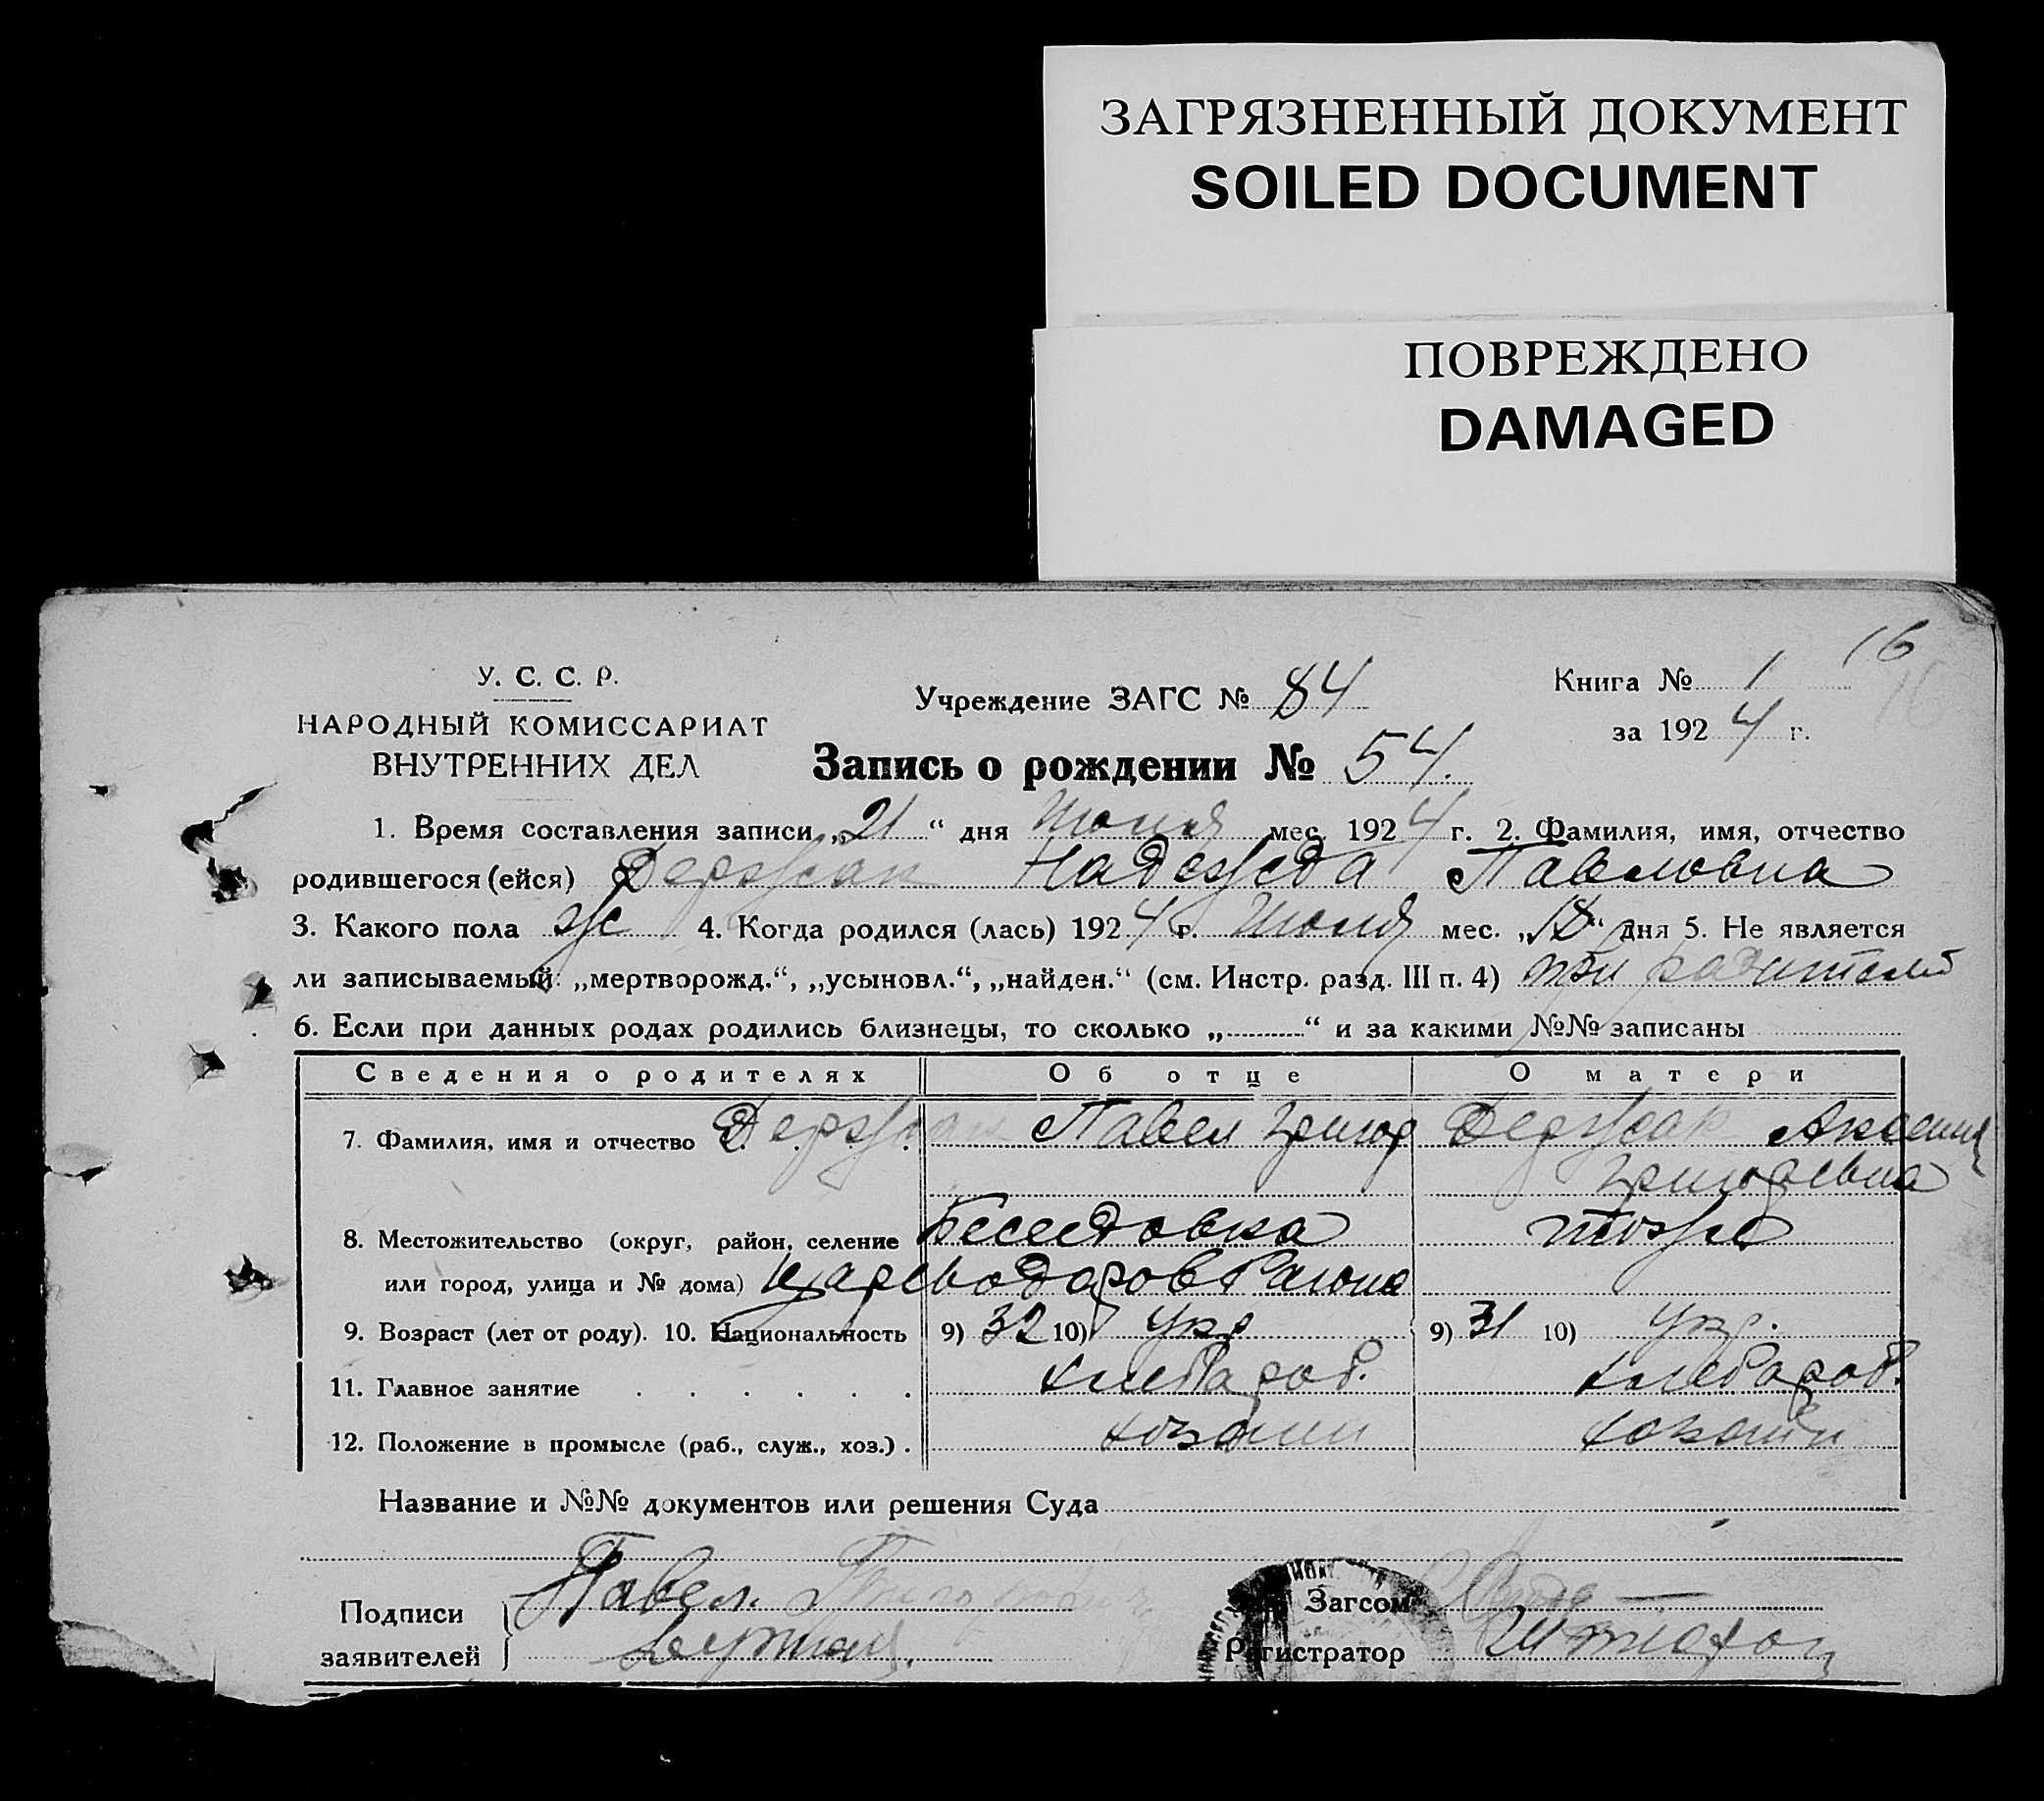 ЗАГРЯЗНЕННЫЙ ДОКУМЕНТ
SOILED DOCUMENT
ПОВРЕЖДЕНО
DAMAGED
16
У. С. С. Р.
НАРОДНЫЙ КОМИССАРИАТ
ВНУТРЕННИХ ДЕЛ
Учреждение ЗАГС № 84
Книга № 1
за 1924 г.
Запись о рождении № 54.
1. Время составления записи „21“ дня мес. 1924 г. 2. Фамилия, имя, отчество
родившегося (ейся) Держак Надежда Павловна
3. Какого пола ж 4. Когда родился (лась) 1924 г. мес. „18“ дня 5. Не является
ли записываемый: „мертворожд.“, „усыновл.“, „найден.“ (см. Инстр. разд. III п. 4) при родителях
6. Если при данных родах родились близнецы, то сколько „..........“ и за какими №№ записаны
Сведения о родителях Об отце О матери
7. Фамилия, имя и отчество Держак Павел Григор Держак Аксения
Григорьевна
8. Местожительство (округ, район, селение Беседовка тоже
или город, улица и № дома)
9. Возраст (лет от роду). 10. Национальность 9) 32 10) Укр 9) 31 10) Укр.
11. Главное занятие . . . . . . хлебороб. хлебороб.
12. Положение в промысле (раб., служ., хоз.) . хозяин хозяин
Название и №№ документов или решения Суда
Подписи
заявителей
Павел
Загсом
Регистратор